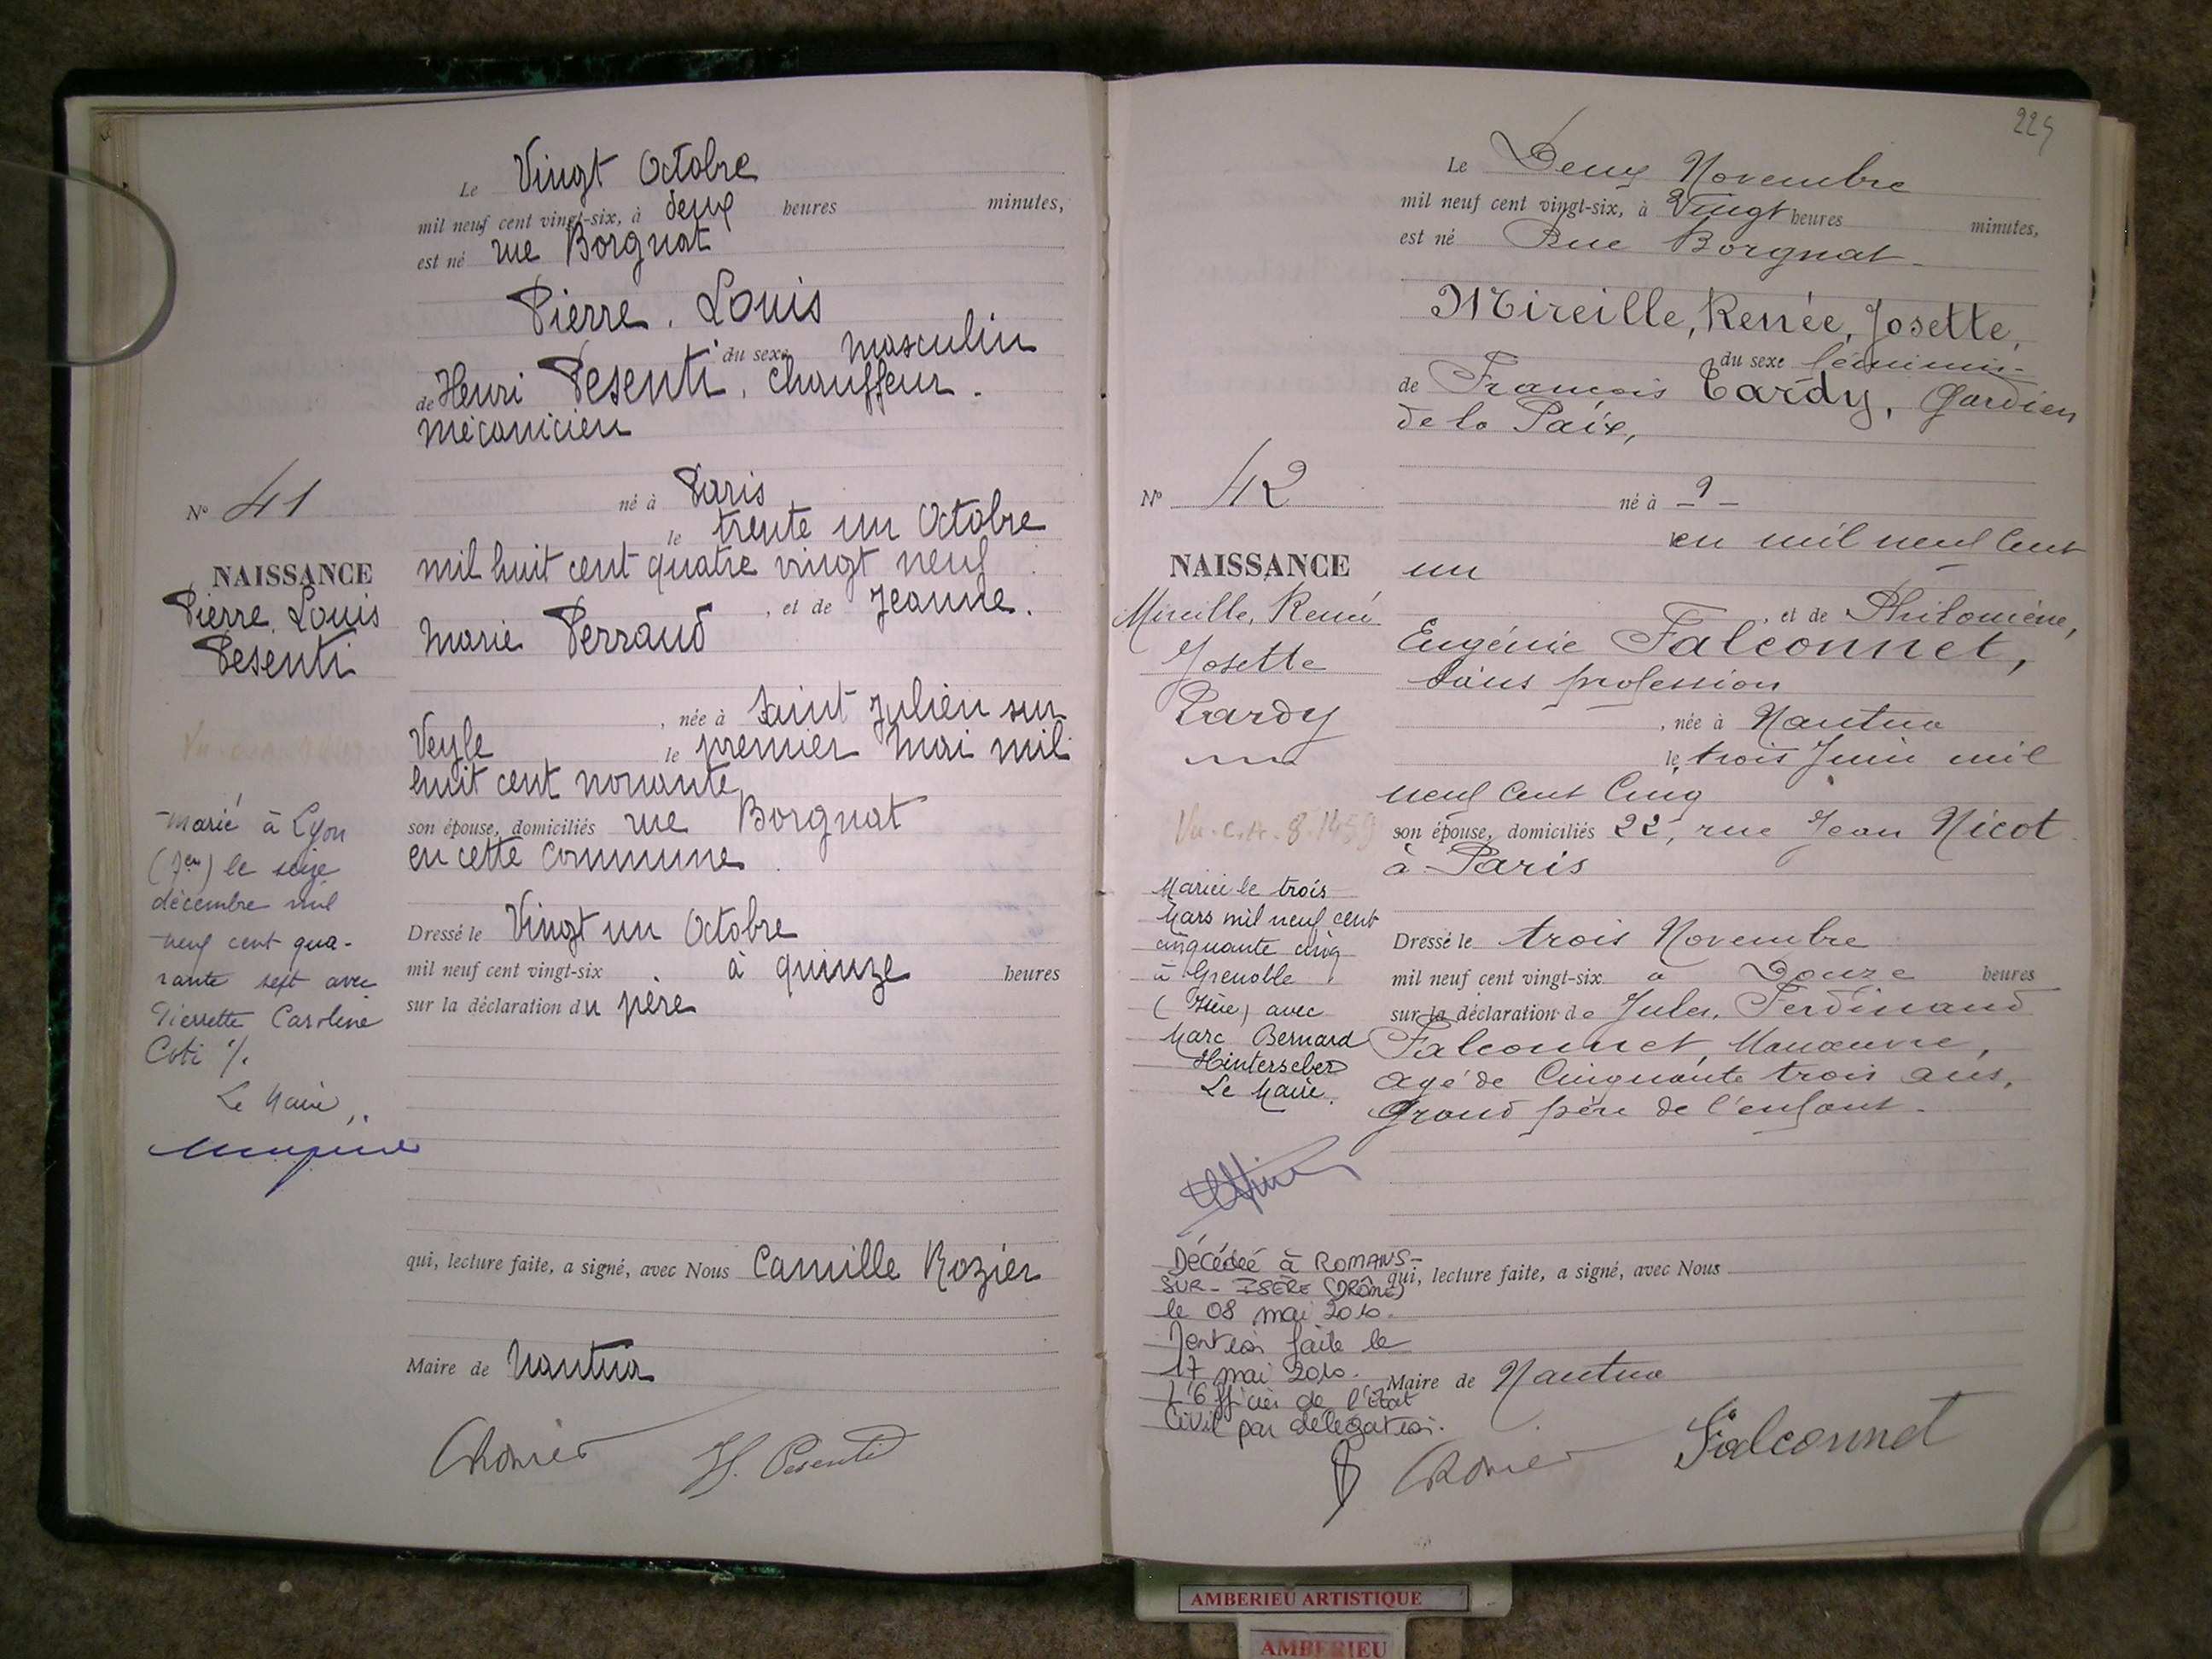 Le Vingt Octobre
mil neuf cent vingt-six, à deux heures minutes,
est né rue Borgnat
Pierre, Louis
du sexe masculin
de Henri Pesenti, chauffeur-
mécanicien
né à Paris
le trente un Octobre
mil huit cent quatre vingt neuf
, et de Jeanne.
Marie Perraud
, née à Saint Julien sur
Veyle le premier Mai mil
huit cent nonante
son épouse, domiciliés rue Borgnat
en cette Commune
Dressé le Vingt un Octobre
mil neuf cent vingt-six à quinze heures
sur la déclaration du père
qui, lecture faite, a signé, avec Nous Camille Rozier
Maire de Nantua
CRozier H. Pesenti
N° 41
NAISSANCE
Pierre, Louis
Pesenti
Marié à Lyon
le seize
décembre mil
neuf cent qua-
rante sept avec
Pierrette Caroline
Coti %.
Le Maire,
225
Le Deux Novembre
mil neuf cent vingt-six, à Vingt heures minutes,
est né Rue Borgnat-
Mireille, Renée, Josette,
du sexe féminin-
de François Tardy, Gardien
de la Paix,
né à - ? -
en mil neuf cent
un
, et de Philomène,
Eugénie Falconnet,
sans profession
, née à Nantua
le trois Juin mil
neuf cent Cinq
son épouse, domiciliés 22, rue Jean Nicot
à Paris
Dressé le trois Novembre
mil neuf cent vingt-six à Douze heures
sur la déclaration de Jules, Ferdinand
Falconnet, Manœuvre,
agé de Cinquante trois ans,
Grand père de l'enfant-
qui, lecture faite, a signé, avec Nous
Maire de Nantua
CRozier Falconnet
N° 42
NAISSANCE
Mireille, Renée
Josette
Tardy
Vu. C.A. 8.1459
Mariée le trois
Mars mil neuf cent
cinquante cinq
à Grenoble
(Isère) avec
Marc Bernard
Hinterseber
Le Maire.
Décédée à ROMANS-
SUR-ISÈRE (DRôme)
le 08 mai 2010.
Mention faite le
17 mai 2010.
L'Officier de l'État
Civil par délégation.
AMBERIEU ARTISTIQUE
AMBERIEU